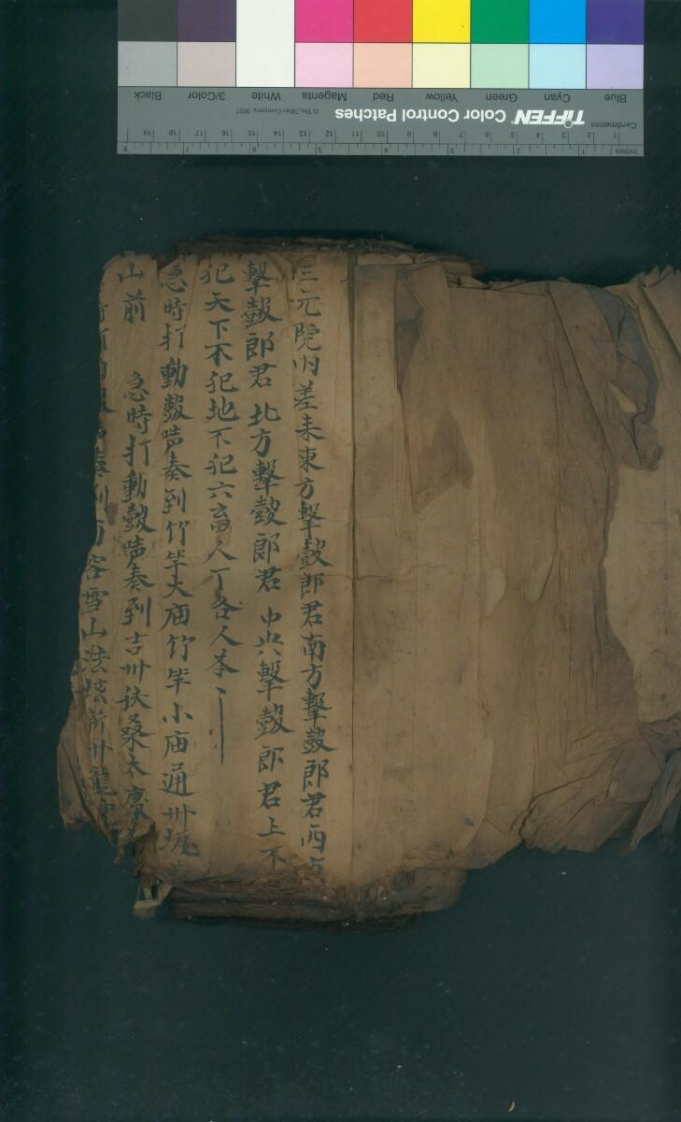 三元院內差来東方擊鼓郎君南方擊鼓郎君西方
擊鼓郎君 北方擊鼓郎君 中央擊鼓郎君上不
犯天下不犯地不犯六畜人丁各人本
急時打動鼓啨奏到竹竿大庙竹竿小庙通卅
山前 急時打動鼓啨奏到吉卅扶桑太
奏到 雪山法
Blue Cyan Green Yellow Red Magenta White 3/Color Black
TIFFEN Color Control Patches © The Tiffen Company, 2007
Centimetres 1 2 3 4 5 6 7 8 9 10 11 12 13 14 15 16 17 18 19
Inches 1 2 3 4 5 6 7 8